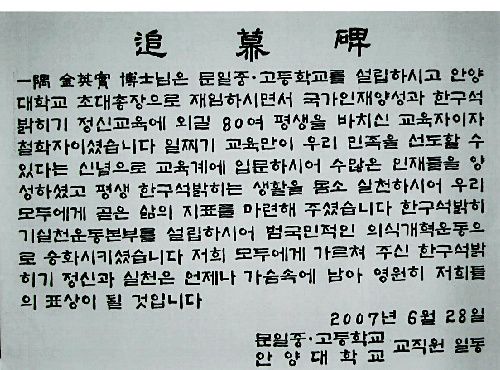 追慕碑
一隅 金英實 博士님은 문일중·고등학교를 설립하시고 안양
대학교 초대총장으로 재임하시면서 국가인재양성과 한구석
밝히기 정신교육에 외길 80여 평생을 바치신 교육자이자
철학자이셨습니다 일찌기 교육만이 우리 민족을 선도할 수
있다는 신념으로 교육계에 입문하시어 수많은 인재들을 양
성하셨고 평생 한구석밝히는 생활을 몸소 실천하시어 우리
모두에게 곧은 삶의 지표를 마련해 주셨습니다 한구석밝히
기실천운동본부를 설립하시어 범국민적인 의식개혁운동으
로 승화시키셨습니다 저희 모두에게 가르쳐 주신 한구석밝
히기 정신과 실천은 언제나 가슴속에 남아 영원히 저희들
의 표상이 될 것입니다
2007년 6월 28일
문일중·고등학교
안양대학교 교직원 일동